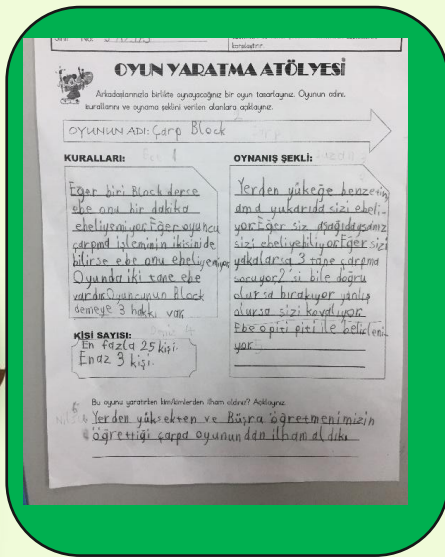 Sınıf No:
karalaştır.
OYUN YARATMA ATÖLYESİ
Arkadaşlarınızla birlikte oynayacağınız bir oyun tasarlayınız. Oyunun adını,
kurallarını ve oynama şeklini verilen alanlara açıklayınız.
OYUNUN ADI: Çarp Block
KURALLARI:
Eğer biri Block derse
ebe onu bir dakika
ebeliyemiyor. Eğer oyuncu
çarpma işleminin ikisini de
bilirse ebe onu ebeliyemiyor.
Oyunda iki tane ebe
vardır. Oyuncunun Block
demeye 3 hakkı var
KİŞİ SAYISI:
En fazla 25 kişi.
En az 3 kişi.
OYNANIŞ ŞEKLİ:
Yerden yükeğe benzetim
ama yukarıda sizi ebeli-
yor. Eğer siz aşağıdaysanız
sizi ebeliyebiliyor. Eğer sizi
yakalarsa 3 tane çarpma
soruyor. 2'si bile doğru
olursa bırakıyor yanlış
olursa sizi kovalıyor.
Ebe o piti piti ile belirleni-
yor.
Bu oyunu yaratırken kim/kimlerden ilham aldınız? Açıklayınız.
Yerden yüksekten ve Büşra öğretmenimizin
öğrettiği çarpa oyunundan ilham aldık.